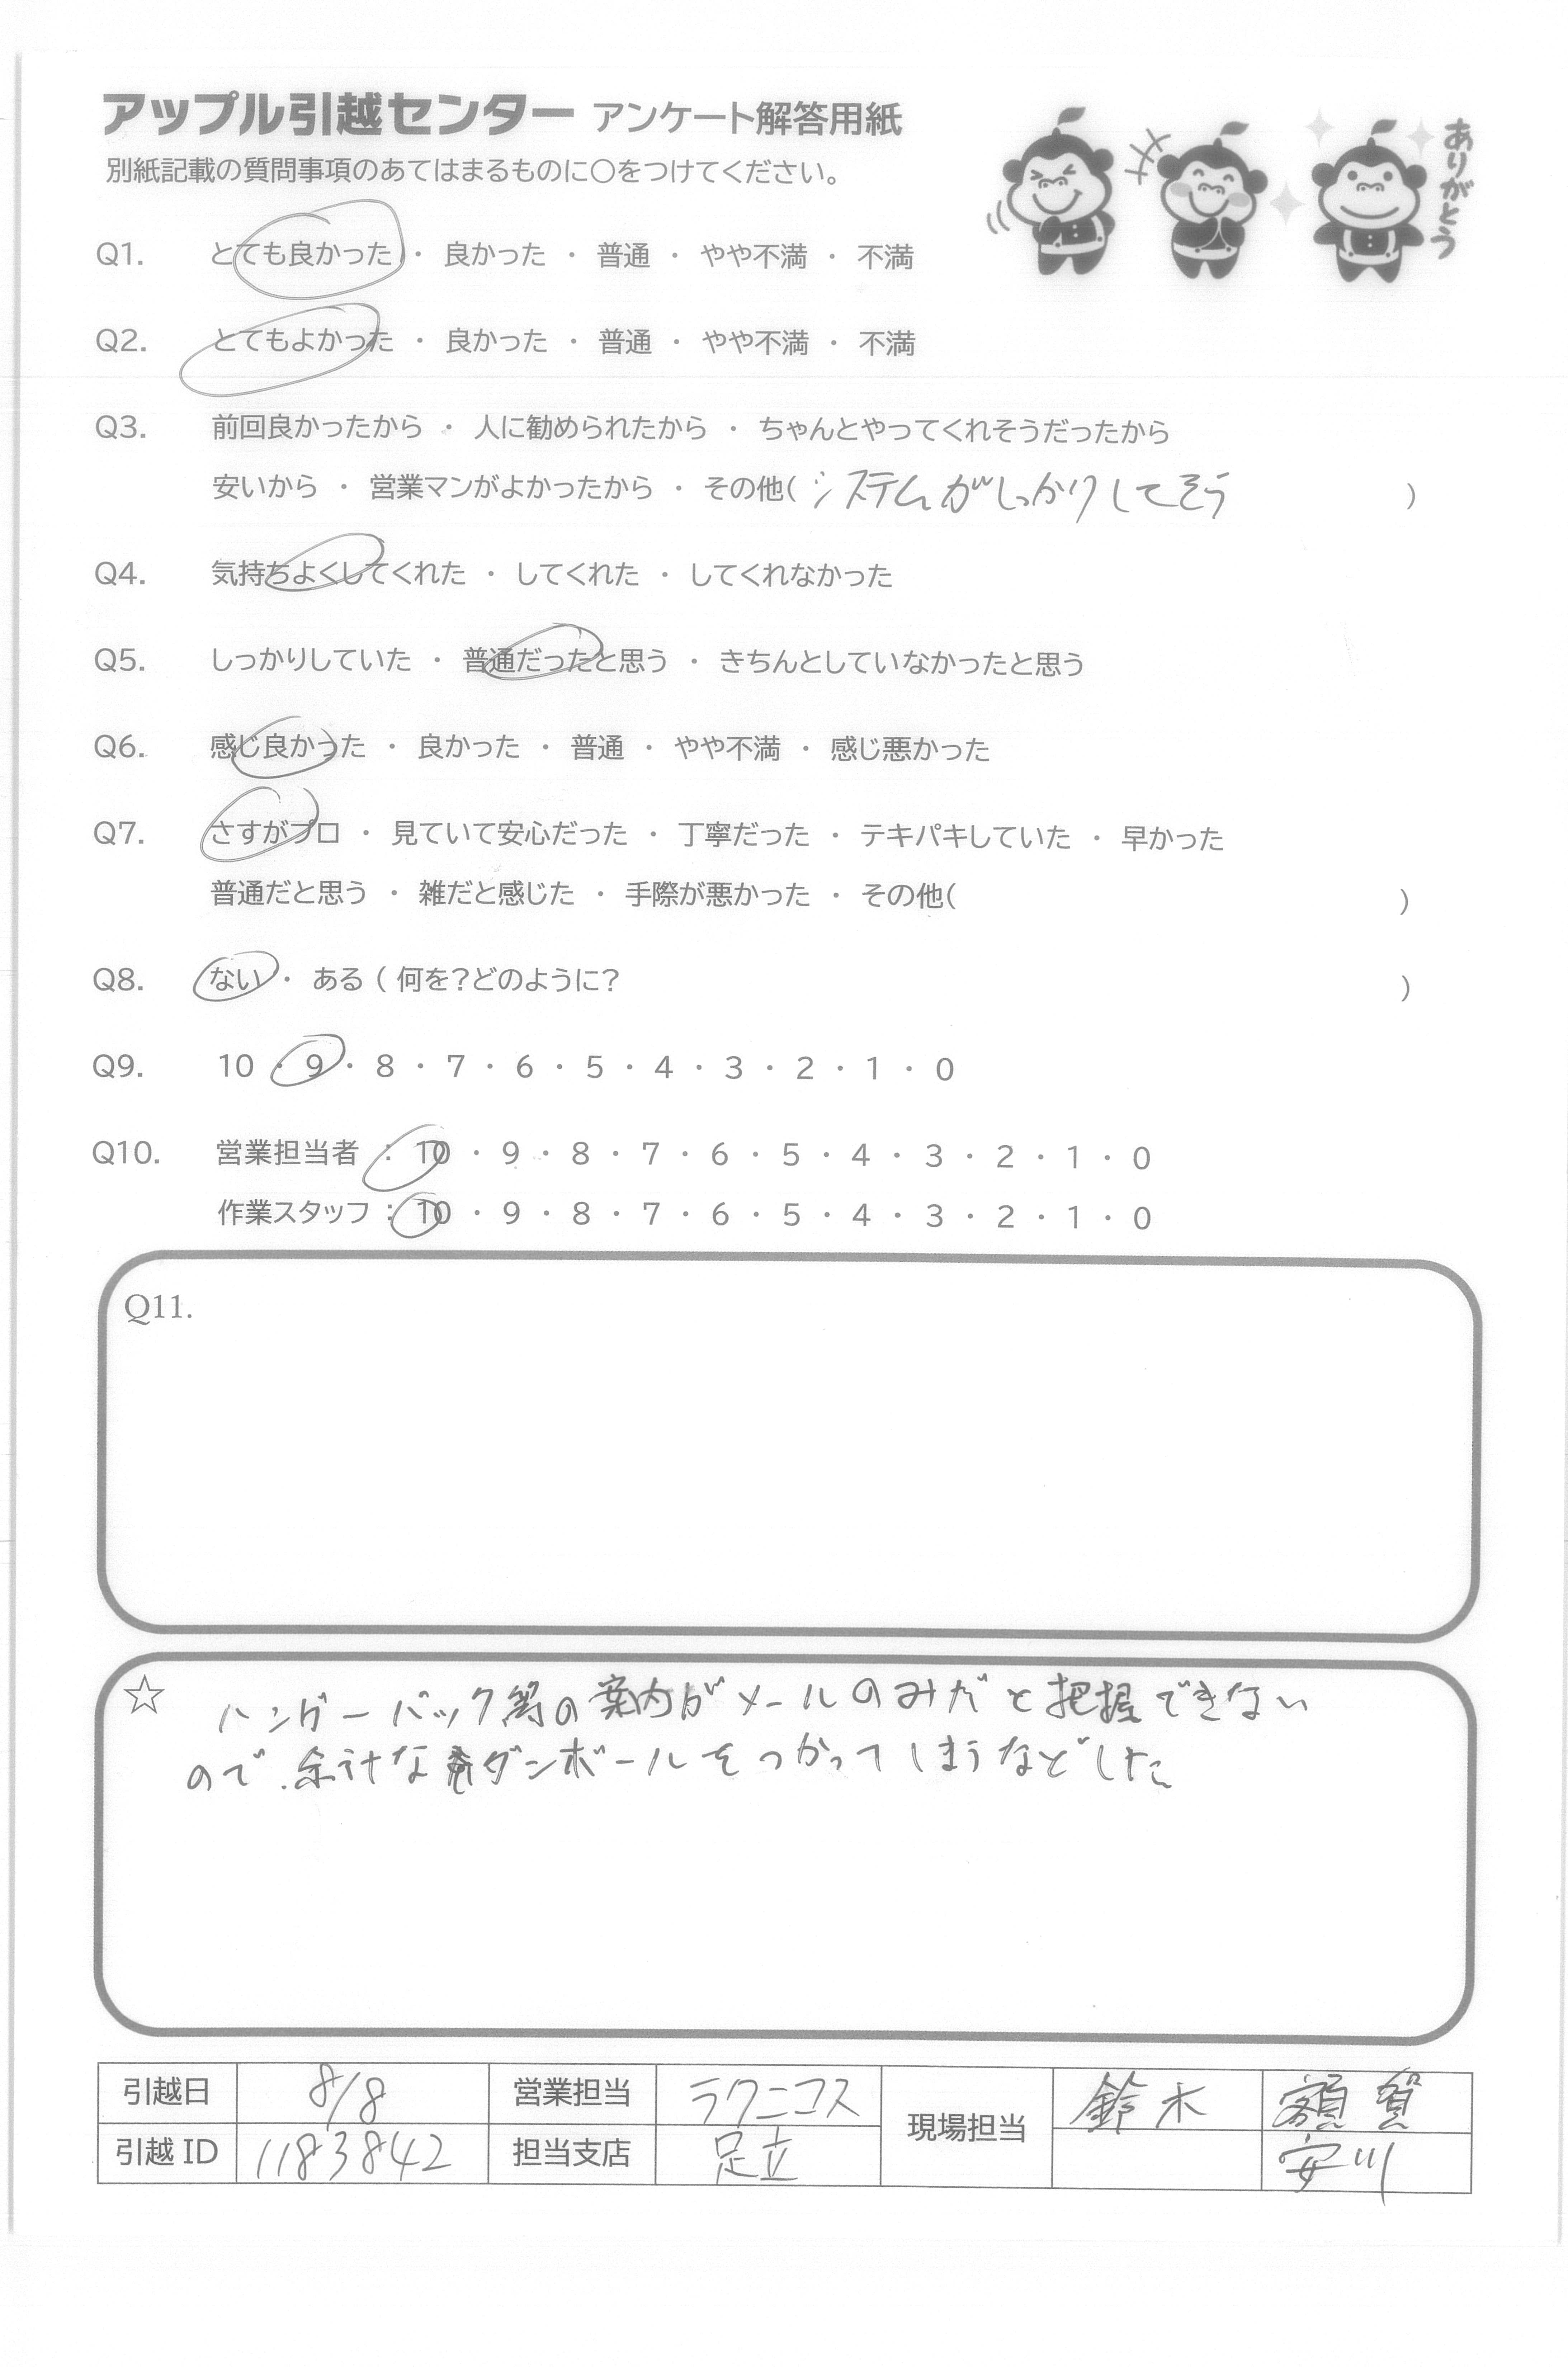 アップル引越センター アンケート解答用紙
別紙記載の質問事項のあてはまるものに○をつけてください。
ありがとう
Q1. とても良かった ・ 良かった ・ 普通 ・ やや不満 ・ 不満
Q2. とてもよかった ・ 良かった ・ 普通 ・ やや不満 ・ 不満
Q3. 前回良かったから ・ 人に勧められたから ・ ちゃんとやってくれそうだったから
安いから ・ 営業マンがよかったから ・ その他( システムがしっかりしてそう )
Q4. 気持ちよくしてくれた ・ してくれた ・ してくれなかった
Q5. しっかりしていた ・ 普通だったと思う ・ きちんとしていなかったと思う
Q6. 感じ良かった ・ 良かった ・ 普通 ・ やや不満 ・ 感じ悪かった
Q7. さすがプロ ・ 見ていて安心だった ・ 丁寧だった ・ テキパキしていた ・ 早かった
普通だと思う ・ 雑だと感じた ・ 手際が悪かった ・ その他( )
Q8. ない ・ ある ( 何を?どのように? )
Q9. 10 ・ 9 ・ 8 ・ 7 ・ 6 ・ 5 ・ 4 ・ 3 ・ 2 ・ 1 ・ 0
Q10. 営業担当者 : 10 ・ 9 ・ 8 ・ 7 ・ 6 ・ 5 ・ 4 ・ 3 ・ 2 ・ 1 ・ 0
作業スタッフ : 10 ・ 9 ・ 8 ・ 7 ・ 6 ・ 5 ・ 4 ・ 3 ・ 2 ・ 1 ・ 0
Q11.
☆ ハンガーバック等の案内がメールのみだと把握できない
ので、余計なダンボールをつかってしまうなどした
引越日 8/8 営業担当 ラクニコス 現場担当 鈴木 額賀
引越ID 1183842 担当支店 足立 安川